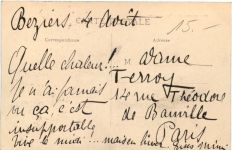 Beziers, 4 Août
15.-
CARTE POSTALE
Correspondance
Adresse
Quelle chaleur!...
Je n'ai jamais
vu ça, c'est
insupportable
vive le midi... maison
M
Dame
Ferroy
14 rue Théodore
de Banville
Paris